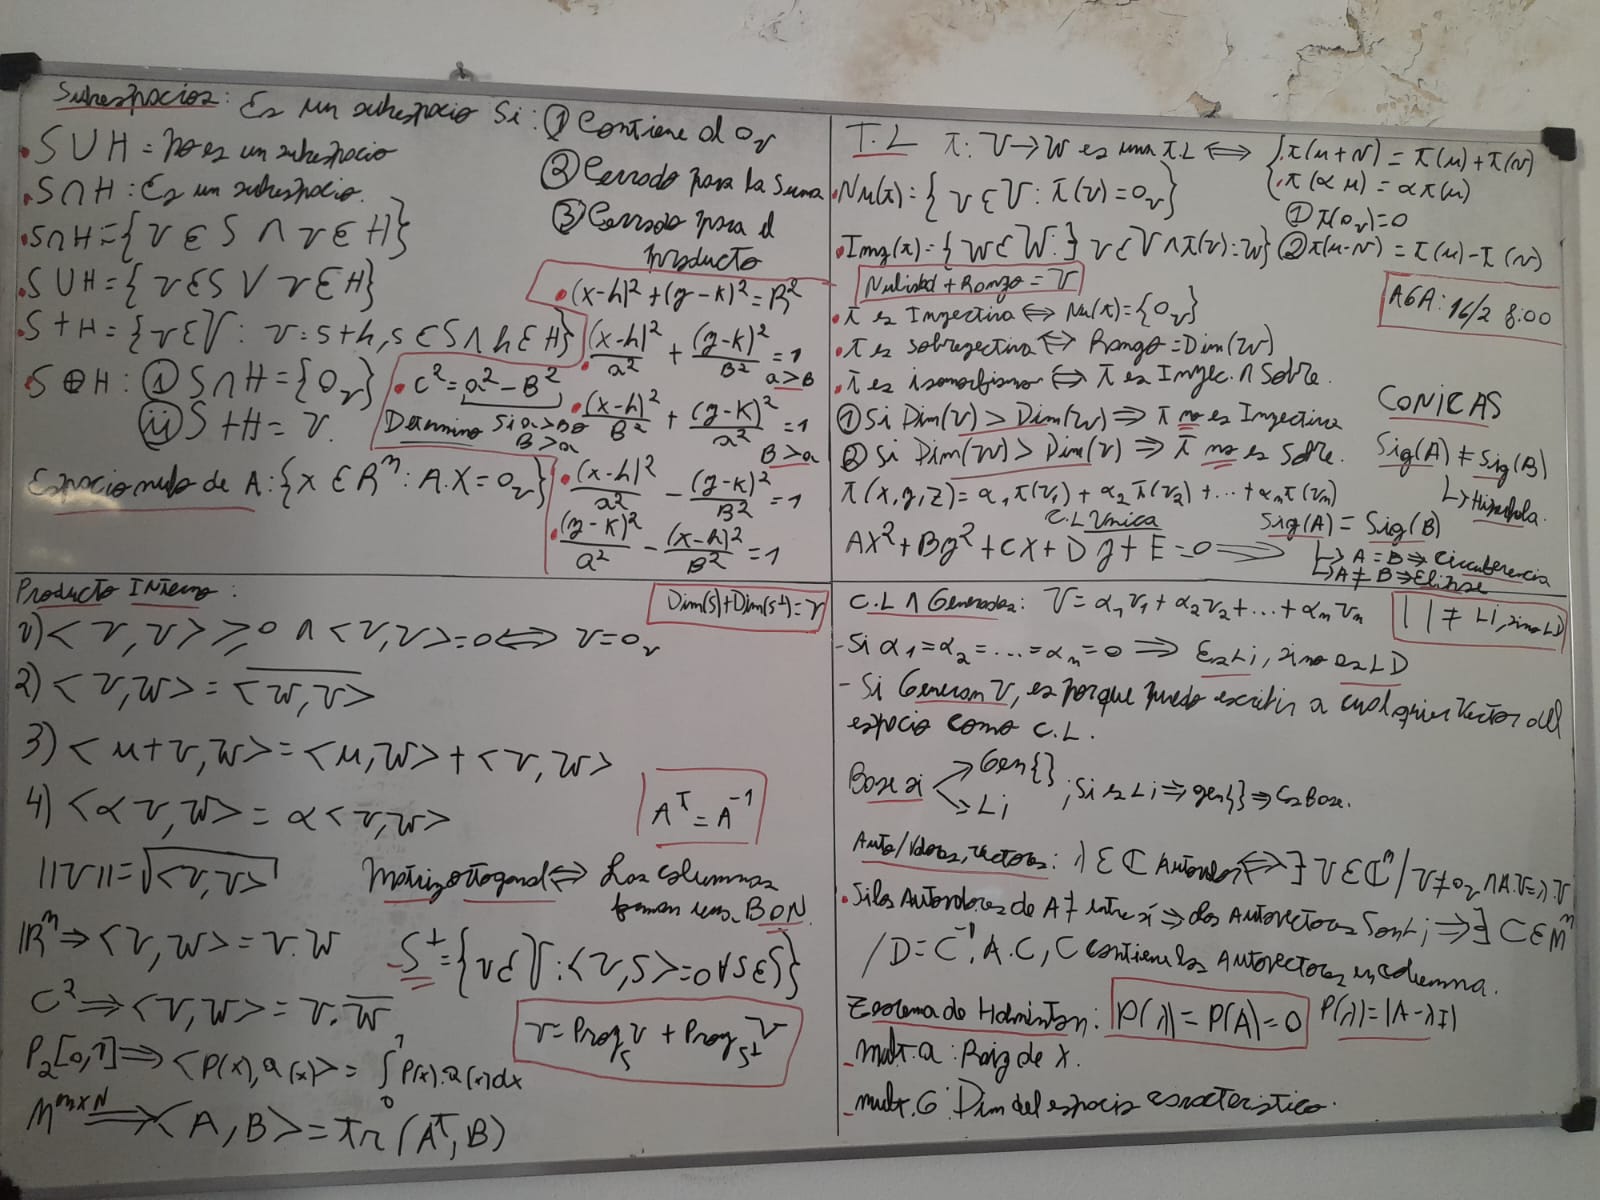 Subespacios: Es un subespacio Si: ① Contiene al 0v
② Cerrado para la Suma
③ Cerrado para el
producto
• S U H = No es un subespacio
• S ∩ H: Es un subespacio.
• S∩H = { v ∈ S ∧ v ∈ H }
• S U H = { v ∈ S ∨ v ∈ H }
• S + H = { v ∈ V: v: s + h, s ∈ S ∧ h ∈ H }
S ⊕ H: ⓘ S ∩ H = { 0v }
ⓘⓘ S + H = V.
Espacio nulo de A: { x ∈ R^n: A.X = 0v }
• (x-h)² + (y-k)² = R²
• (x-h)²/a² + (y-k)²/B² = 1
a > B
• C² = a² - B²
Determino Si a > B o
B > a
• (x-h)²/B² + (y-k)²/a² = 1
B > a
• (x-h)²/a² - (y-k)²/B² = 1
• (y-k)²/a² - (x-h)²/B² = 1
T.L T: V → W es una T.L ⟺ { .T(u+v) = T(u) + T(v)
.T(α u) = α T(u)
① T(0v) = 0
• Nu(T) = { v ∈ V: T(v) = 0v }
• Img(T) = { W ∈ W: ∃ v ∈ V ∧ T(v) = W } ② T(u-v) = T(u) - T(v)
Nulidad + Rango = V
AGA: 16/2 8:00
• T es Inyectiva ⟺ Nu(T) = { 0v }
• T es sobreyectiva ⟺ Rango = Dim(W)
• T es isomorfismo ⟺ T es Inyec. ∧ Sobre.
① Si Dim(V) > Dim(W) ⟹ T no es Inyectiva
② Si Dim(W) > Dim(V) ⟹ T no es Sobre.
T(x,y,z) = α₁T(v₁) + α₂T(v₂) + ... + αnT(vn)
C.L Única
CONICAS
Sig(A) ≠ Sig(B)
↳ Hiperbola.
Sig(A) = Sig(B)
AX² + By² + CX + Dy + E = 0 ⟹ ↳ A = B ⟹ Circunferencia
↳ A ≠ B ⟹ Elipse
Producto Interno:
Dim(S) + Dim(S⊥) = V
1) < v, v > ≥ 0 ∧ < v, v > = 0 ⟺ v = 0v
2) < v, w > = \overline{< w, v >}
3) < u + v, w > = < u, w > + < v, w >
4) < α v, w > = α < v, w >
A^T = A^-1
||v|| = √< v, v >
Matriz ortogonal ⟺ Las columnas
forman una BON.
R^n ⟹ < v, w > = v . w
S⊥ = { v ∈ V: < v, s > = 0 ∀ s ∈ S }
C² ⟹ < v, w > = v . \overline{w}
v = Proy_S v + Proy_S⊥ v
P₂[0,1] ⟹ < P(x), Q(x) > = ∫₀¹ P(x).Q(x) dx
M^mxN ⟹ < A, B > = Tr(A^T, B)
C.L ∧ Generador: V = α₁v₁ + α₂v₂ + ... + αnvn
| | ≠ Li, sino LD
- Si α₁ = α₂ = ... = αn = 0 ⟹ Es Li, sino es LD
- Si Generan V, es porque puedo escribir a cualquier Vector del
espacio como C.L.
Base si → Gen{}
→ Li
; Si es Li ⟹ gen{} ⟹ Es Base.
Auto/Valores, vectores: λ ∈ C Autovalor ⟺ ∃ v ∈ C^n / v ≠ 0v ∧ A.v = λ.v
• Si los Autovalores de A ≠ entre sí ⟹ los Autovectores Son Li ⟹ ∃ C ∈ M^n
/ D = C^-1 . A . C, C contiene los Autovectores en columna.
Teorema de Halminton: P(λ) = P(A) = 0 P(λ) = |A - λI|
- mult. a: Raiz de X.
- mult. G: Dim del espacio caracteristico.